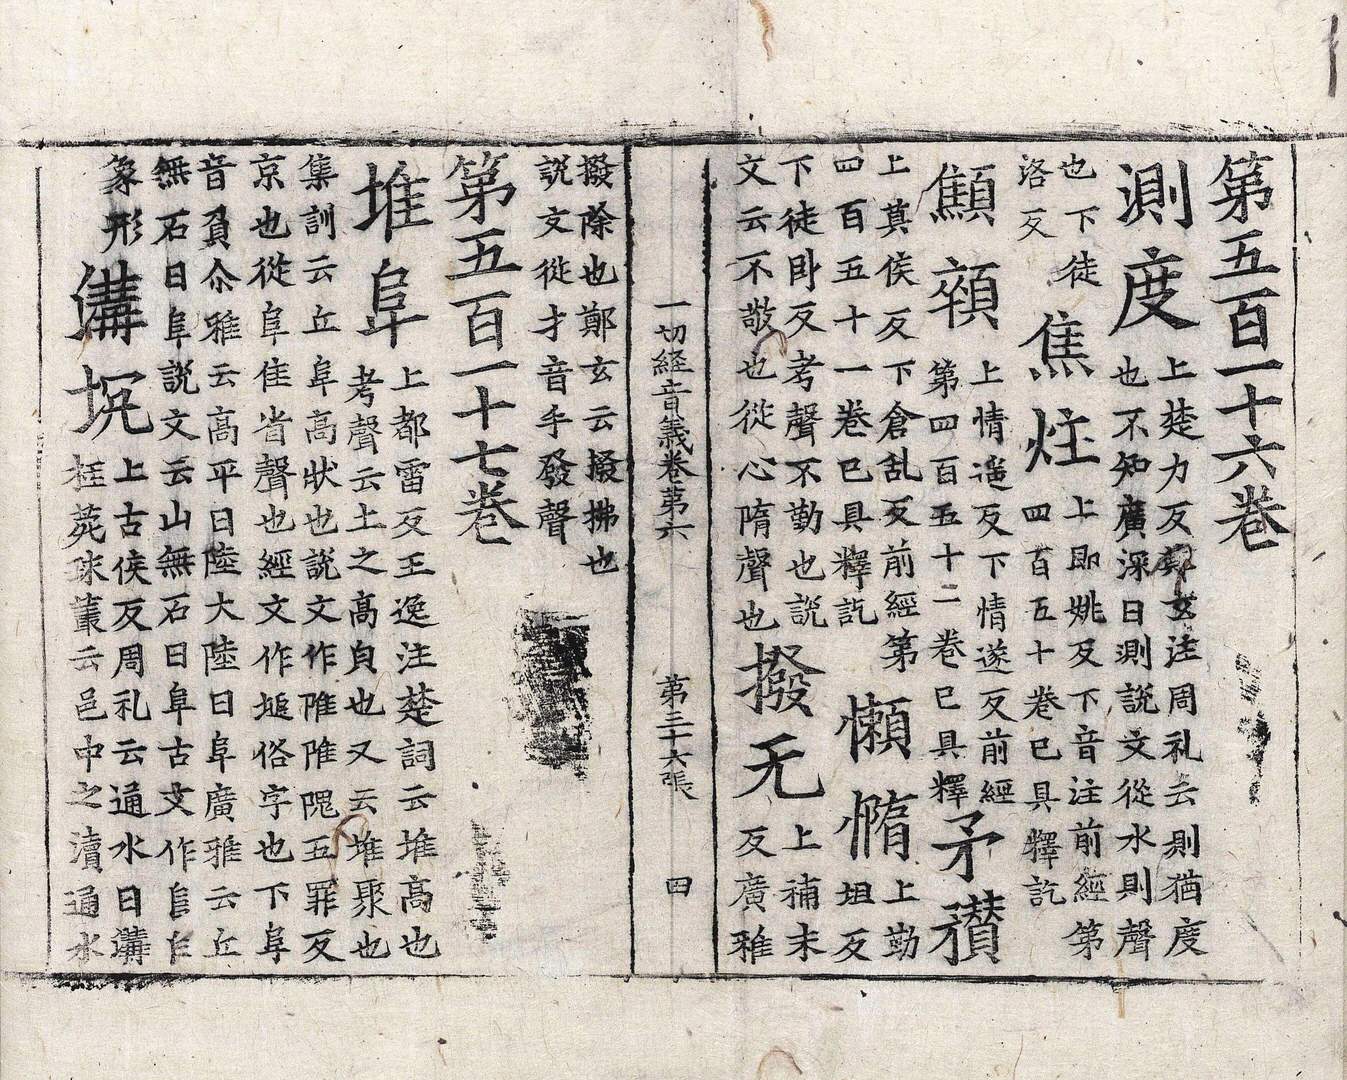 第五百一十六卷
測度上楚力反鄭玄注周礼云測猶度
也不知廣深曰測說文從水則聲
也下徒
洛反
焦炷上即姚反下音注前經第
四百五十卷已具釋訖
顦顇上情遥反下情遂反前經
第四百五十二卷已具釋
矛䂎
上莫侯反下倉乱反前經第
四百五十一卷已具釋訖
懶惰上勤
坦反
下徒卧反考聲不勤也說
文云不敬也從心隋聲也
撥无上補末
反廣雅
一切経音義卷第六 第三十六張 四
撥除也鄭玄云撥拂也
說文從才音手發聲
第五百一十七卷
堆阜上都雷反王逸注楚詞云堆高也
考聲云土之高皃也又云堆聚也
集訓云丘阜高狀也說文作陮陮隗五罪反
京也從阜隹省聲也經文作塠俗字也下阜
音負尒雅云高平曰陸大陸曰阜廣雅云丘
無石曰阜說文云山無石曰阜古文作𨸏
象形
溝坑上古侯反周礼云通水曰溝
桂苑珠叢云邑中之瀆通水